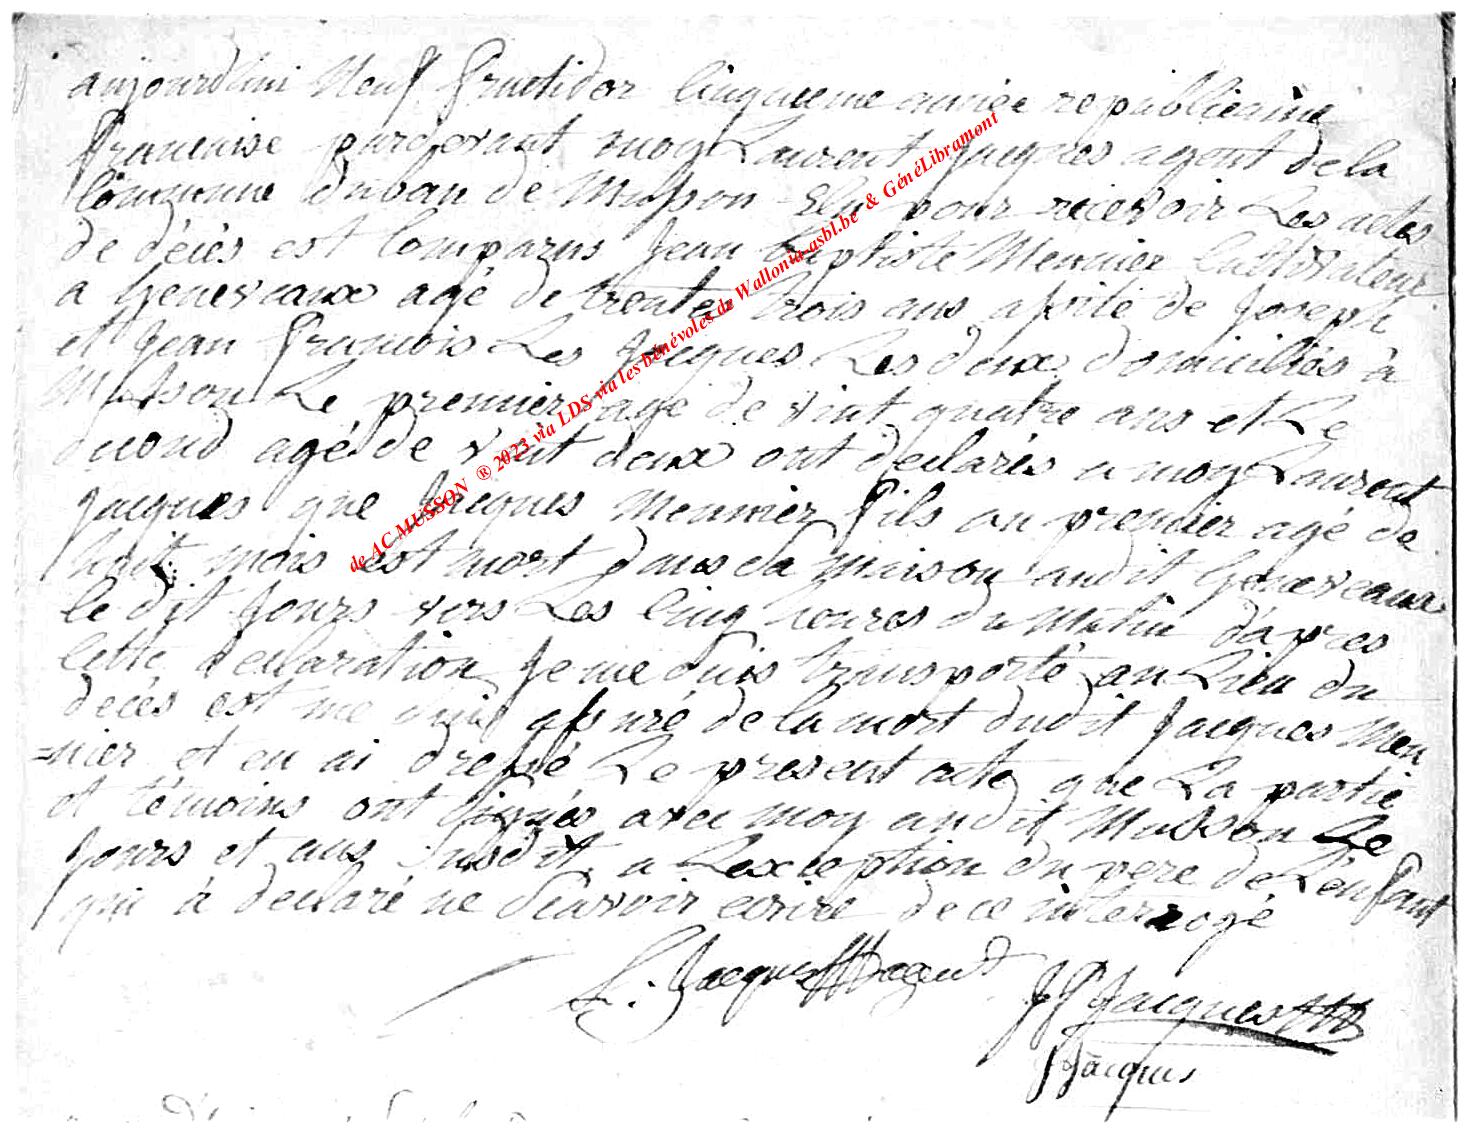 aujourdhui Neuf fructidor Cinquieme année republicaine
francaise pardevant moy Laurent Jacques agent de la
Commune du ban de Musson Elu pour recevoir Les actes
de décés est Comparus Jean Baptiste Meunier Cultivateur
a Geneveaux agé de trente trois ans assité de Joseph
et Jean François Les Jacques Les deux domiciliés à
Musson Le premier agé de vint quatre ans et Le
second agé de vint deux ont déclarés a moy Laurent
Jacques que Jacques Meunier fils au premier agé de
huit mois est mort dans sa maison audit Geneveaux
le dit Jours vers Les Cinq heures du Matin d'apres
Cette declaration Je me suis transporté au Lieu du
decés est me suis assuré de la mort dudit Jacques Meu
=nier et en ai dressé Le present acte que La partie
et témoins ont signés avec moy audit Musson Le
Jours et ans susdit a Lexception du pere de L'enfant
qui à declaré ne Scavoir ecrire de ce interrogé
L. Jacques agent
JF Jacques
J Jacques
de AC MUSSON ® 2023 via LDS via les bénévoles de Wallonia-asbl.be & GénéLibramont